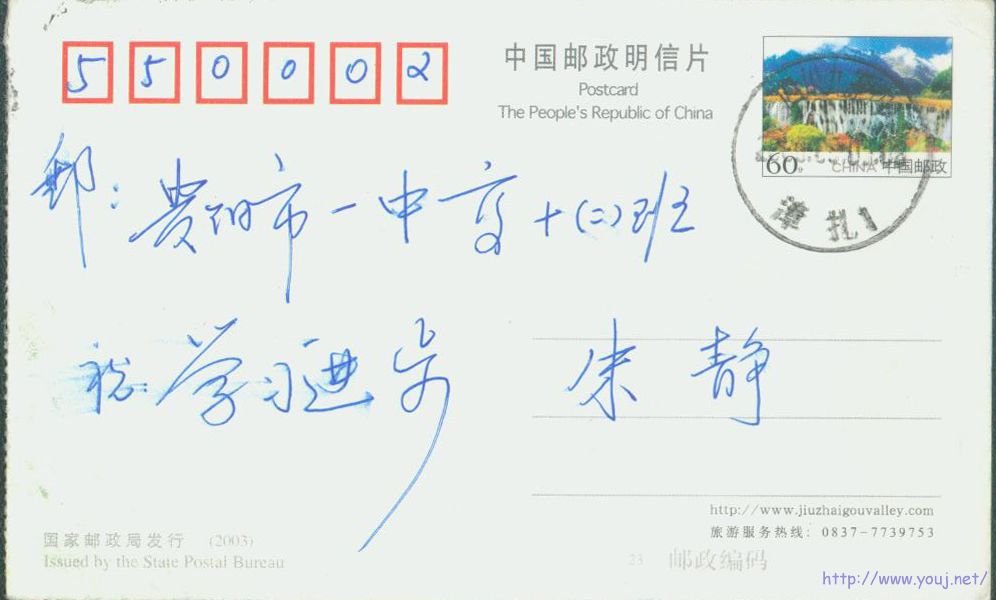 550002
中国邮政明信片
Postcard
The People's Republic of China
60分 CHINA 中国邮政
漳扎1
邮：贵阳市一中高十(二)班
祝：学习进步
朱静
http://www.jiuzhaigouvalley.com
旅游服务热线：0837-7739753
国家邮政局发行 (2003)
Issued by the State Postal Bureau
23 邮政编码
http://www.youj.net/